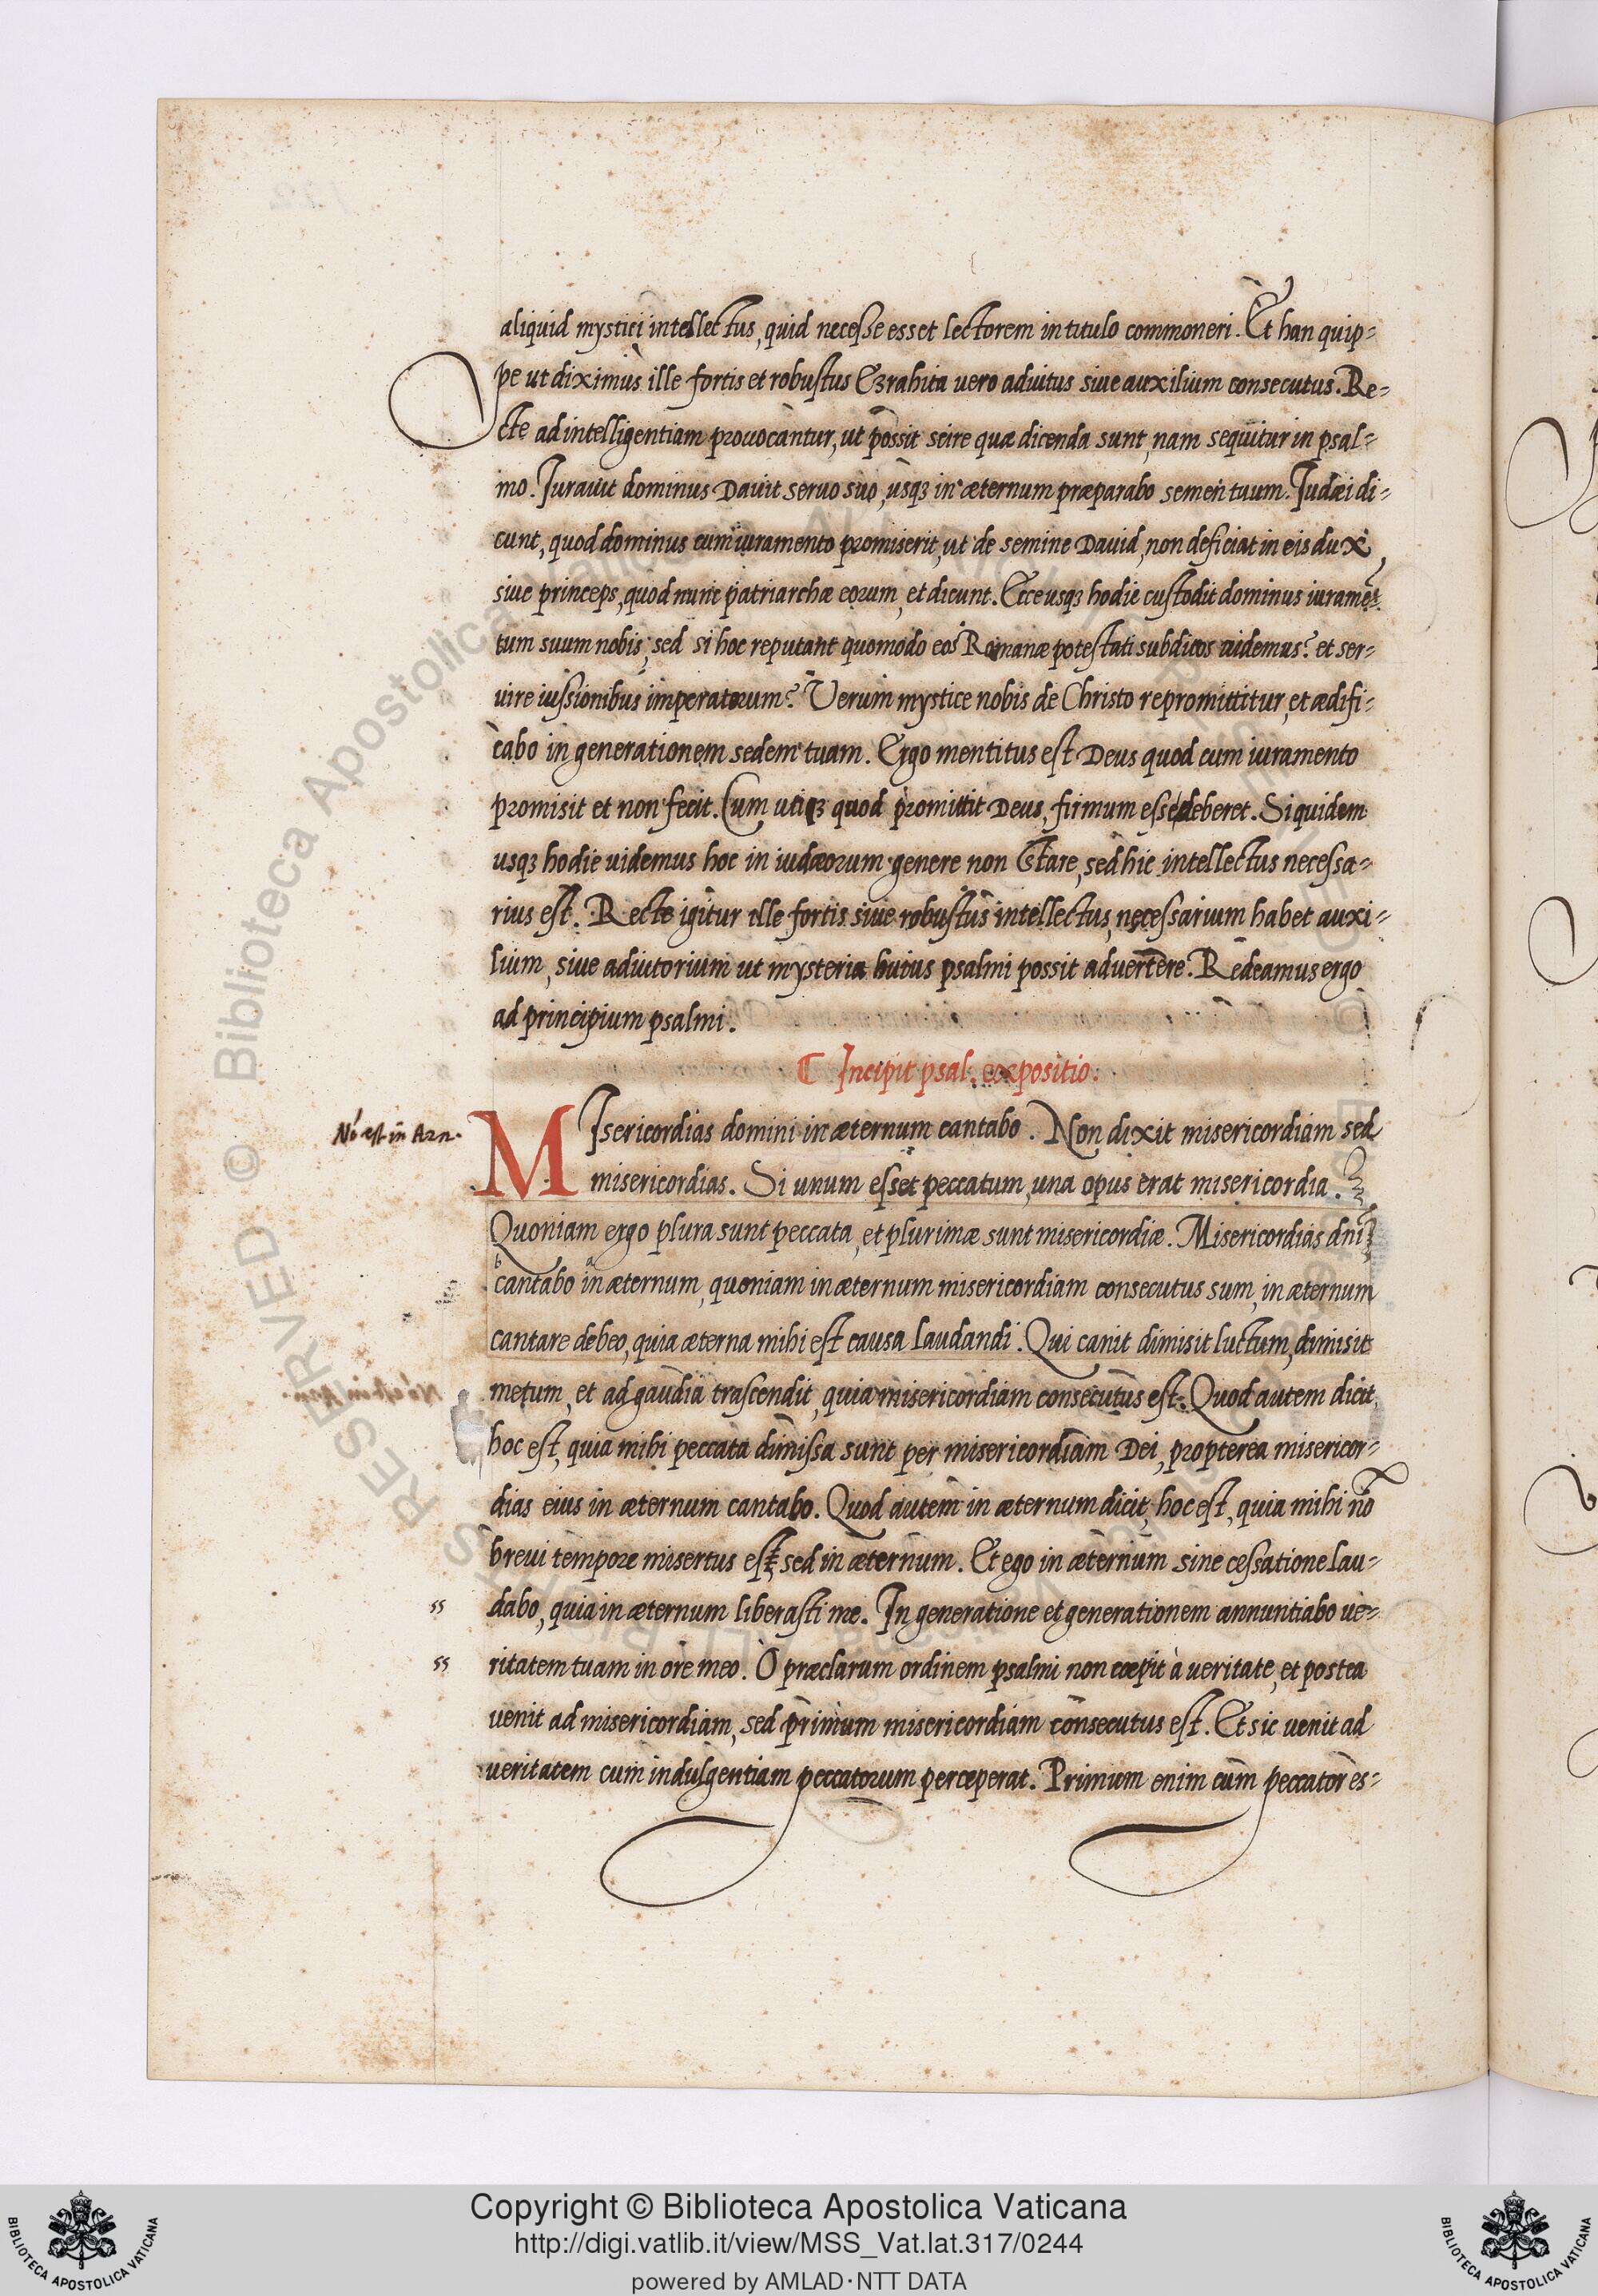 aliquid mystici intellectus, quid necesse esset lectorem in titulo commoneri. Et han quip-
pe ut diximus ille fortis et robustus Ezrahita vero adiutus siue auxilium consecutus. Re-
cte ad intelligentiam prouocantur, ut possit scire quæ dicenda sunt, nam sequitur in psal-
mo. Iurauit dominus Dauit seruo suo, usqꝫ in æternum præparabo semen tuum. Iudæi di-
cunt, quod dominus cum iuramento promiserit, ut de semine Dauid, non deficiat in eis dux,
siue princeps, quod nunc patriarchæ eorum, et dicunt. Ecce usqꝫ hodie custodit dominus iuramẽ-
tum suum nobis, sed si hoc reputant quomodo eos Romanæ potestati subditos uidemus? et ser-
uire iussionibus imperatorum? Verum mystice nobis de Christo repromittitur, et ædifi-
cabo in generationem sedem tuam. Ergo mentitus est Deus quod cum iuramento
promisit et non fecit. Cum utiqꝫ quod promittit Deus, firmum esse deberet. Siquidem
usqꝫ hodie uidemus hoc in iudæorum genere non stare, sed hic intellectus necessa-
rius est. Recte igitur ille fortis siue robustus intellectus, necessarium habet auxi-
lium, siue adiutorium ut mysteria huius psalmi possit aduertere. Redeamus ergo
ad principium psalmi.
Incipit psal. expositio.
No est in Arn.
MIsericordias domini in æternum cantabo. Non dixit misericordiam sed
misericordias. Si unum esset peccatum, una opus erat misericordia.
Quoniam ergo plura sunt peccata, et plurimæ sunt misericordiæ. Misericordias dñi
b a
cantabo in æternum, quoniam in æternum misericordiam consecutus sum, in æternum
cantare debeo, quia æterna mihi est causa laudandi. Qui canit dimisit luctum, dimisit
metum, et ad gaudia trascendit, quia misericordiam consecutus est. Quod autem dicit,
hoc est, quia mihi peccata dimissa sunt per misericordiam Dei, propterea misericor-
dias eius in æternum cantabo. Quod autem in æternum dicit, hoc est, quia mihi nõ
breui tempore misertus est, sed in æternum. Et ego in æternum sine cessatione lau-
55 dabo, quia in æternum liberasti me. In generatione et generationem annuntiabo ue-
55 ritatem tuam in ore meo. O præclarum ordinem psalmi non cœpit à ueritate, et postea
uenit ad misericordiam, sed primum misericordiam consecutus est. Et sic uenit ad
ueritatem cum indulgentiam peccatorum perceperat. Primum enim cum peccator es-
Copyright © Biblioteca Apostolica Vaticana
http://digi.vatlib.it/view/MSS_Vat.lat.317/0244
powered by AMLAD·NTT DATA
BIBLIOTECA APOSTOLICA VATICANA
BIBLIOTECA APOSTOLICA VATICANA